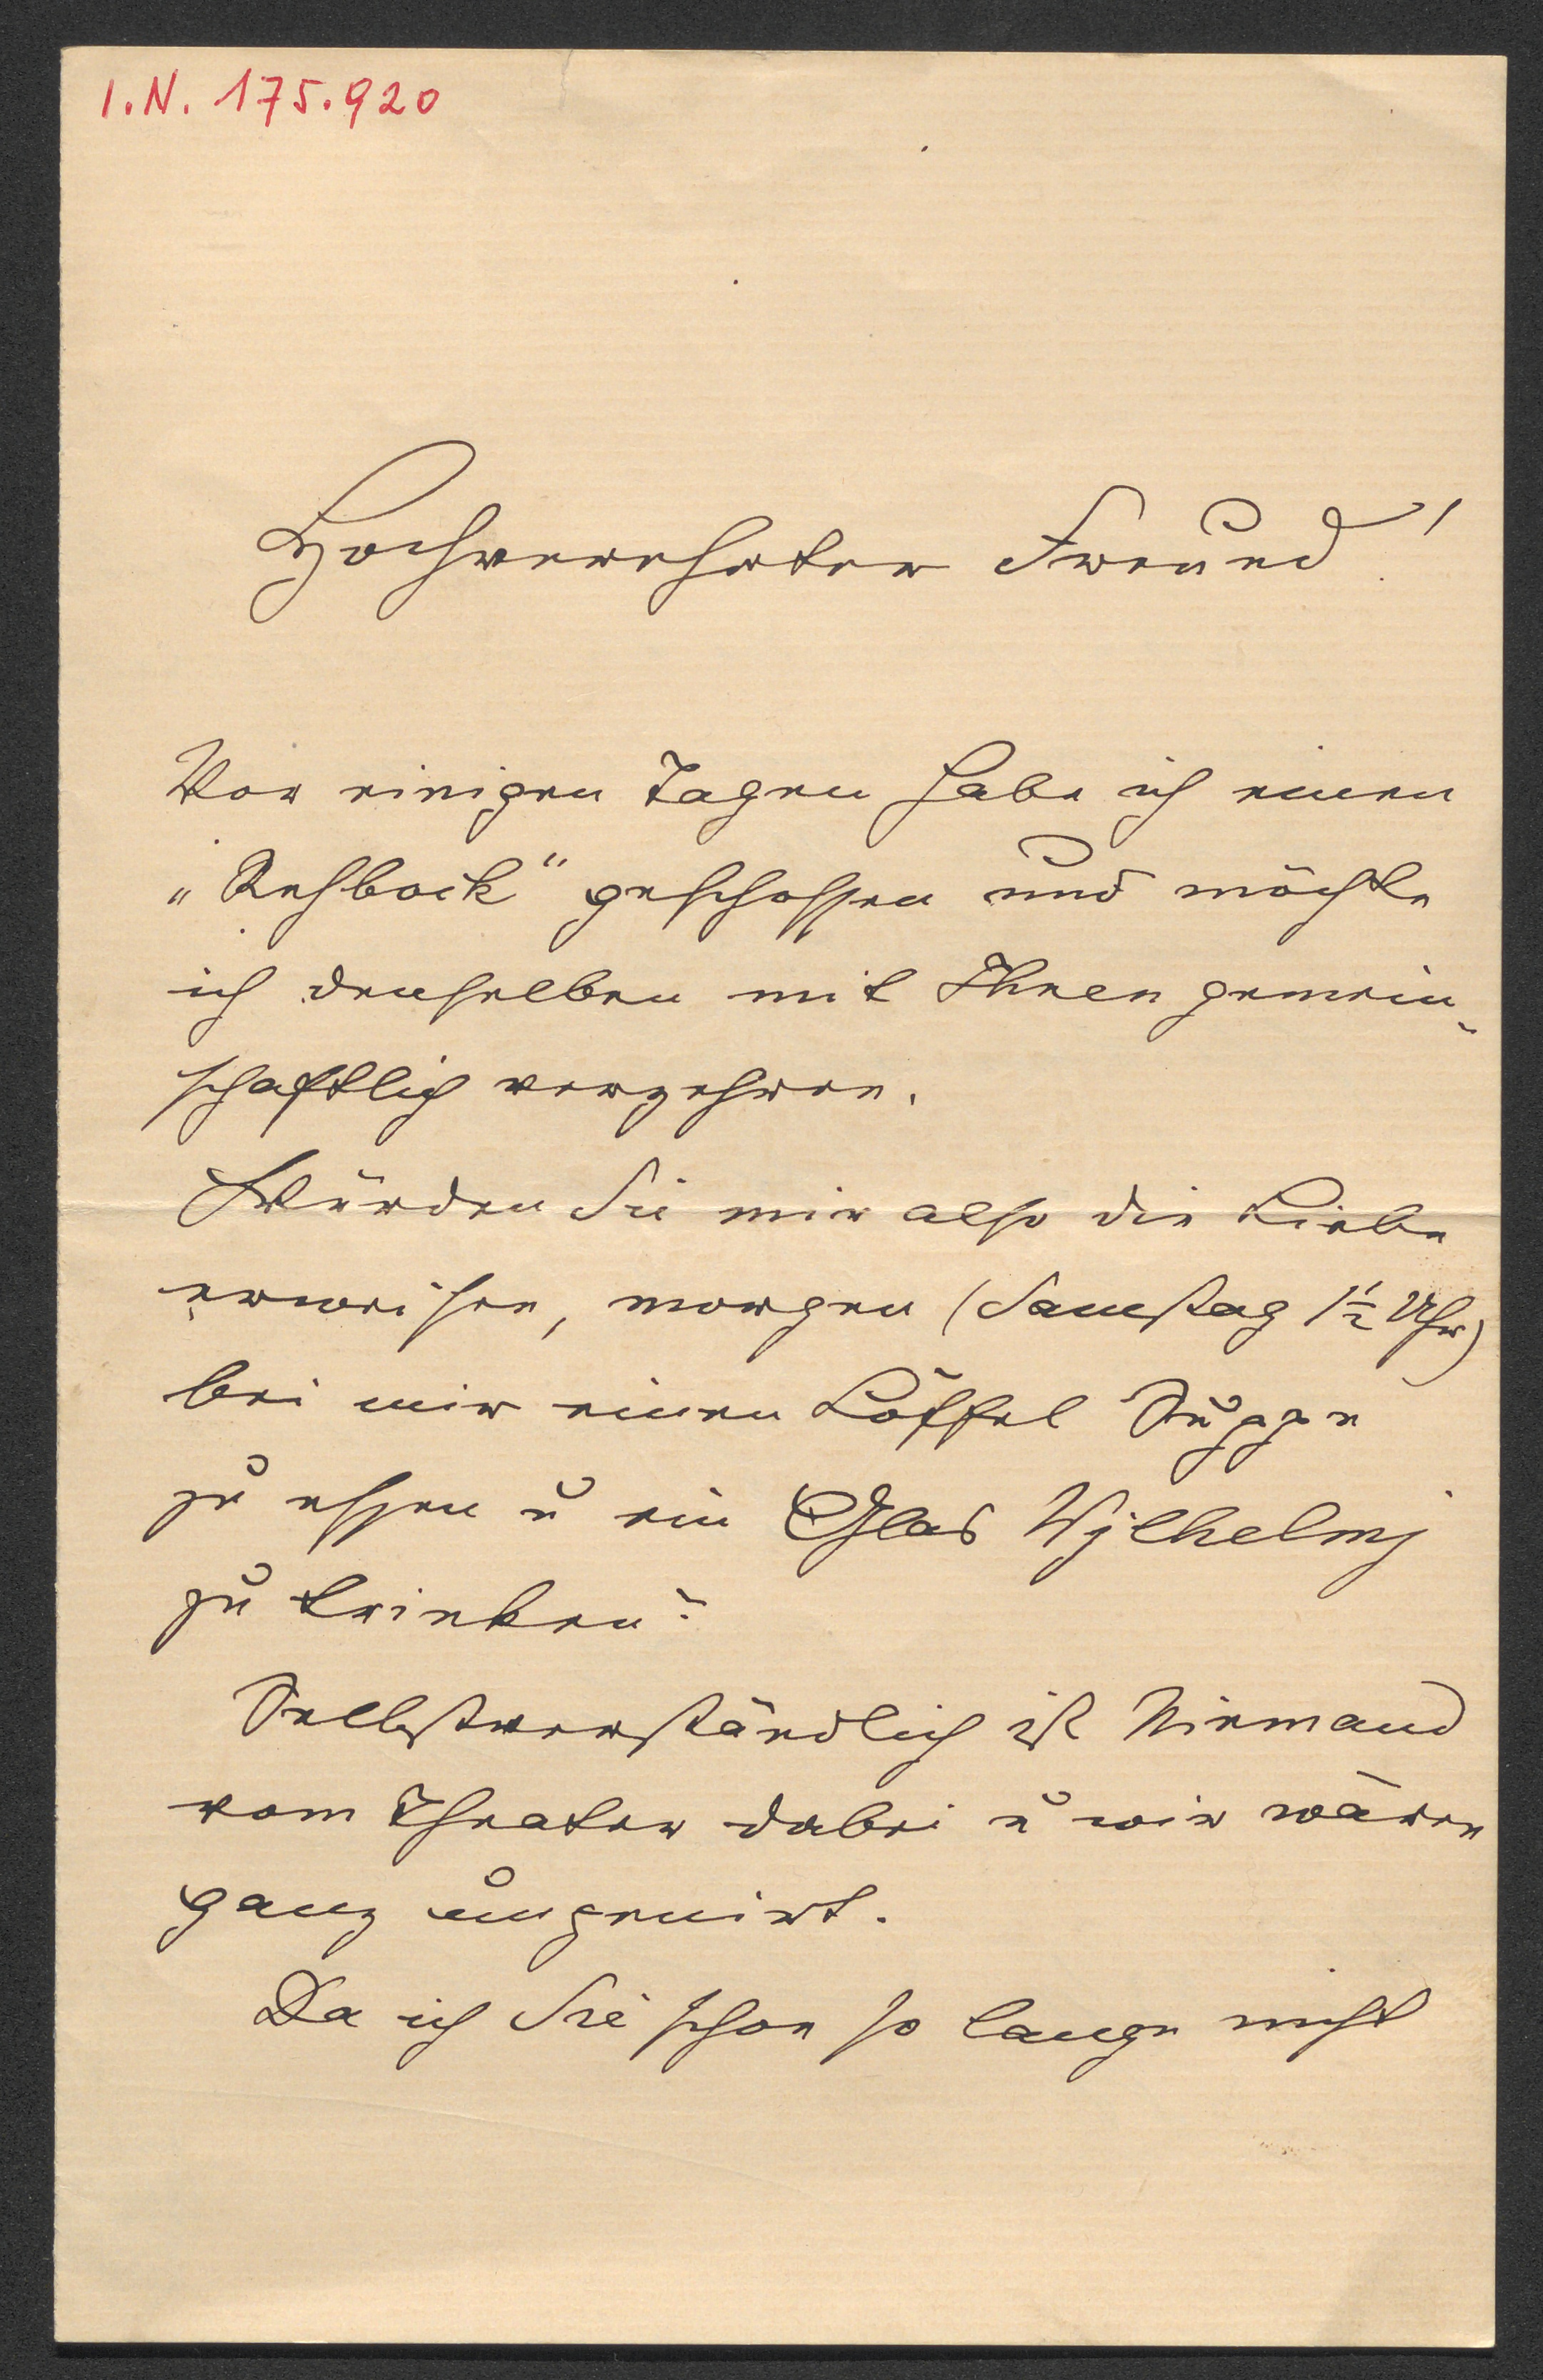 I.N. 175.920
Hochverehrter Freund!
Vor einigen Tagen habe ich einen
„Rehbock" geschossen und möchte
ich denselben mit Ihnen gemein-
schaftlich verzehren.
Würden Sie mir also die Liebe
erweisen, morgen (Samstag 1½ Uhr)
bei mir einen Löffel Suppe
zu essen u ein Glas Wjlhelmj
zu trinken?
Selbstverständlich ist Niemand
vom Theater dabei u wir wären
ganz ungenirt.
Da ich Sie schon so lange nicht